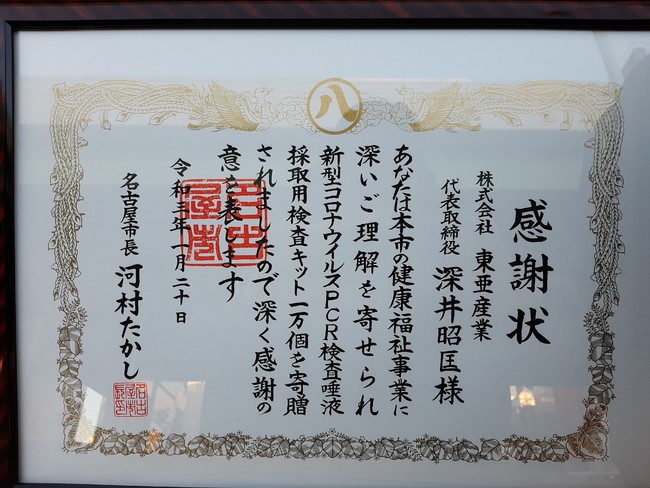 八
感謝状
株式会社 東亜産業
代表取締役 深井昭匡様
あなたは本市の健康・福祉事業に
深いご理解を寄せられ
新型コロナウイルスPCR検査唾液
採取用検査キット一万個を寄贈
されましたので深く感謝の
意を表します
令和三年一月二十日
名古屋市長 河村たかし
名古屋市
名古屋市長印